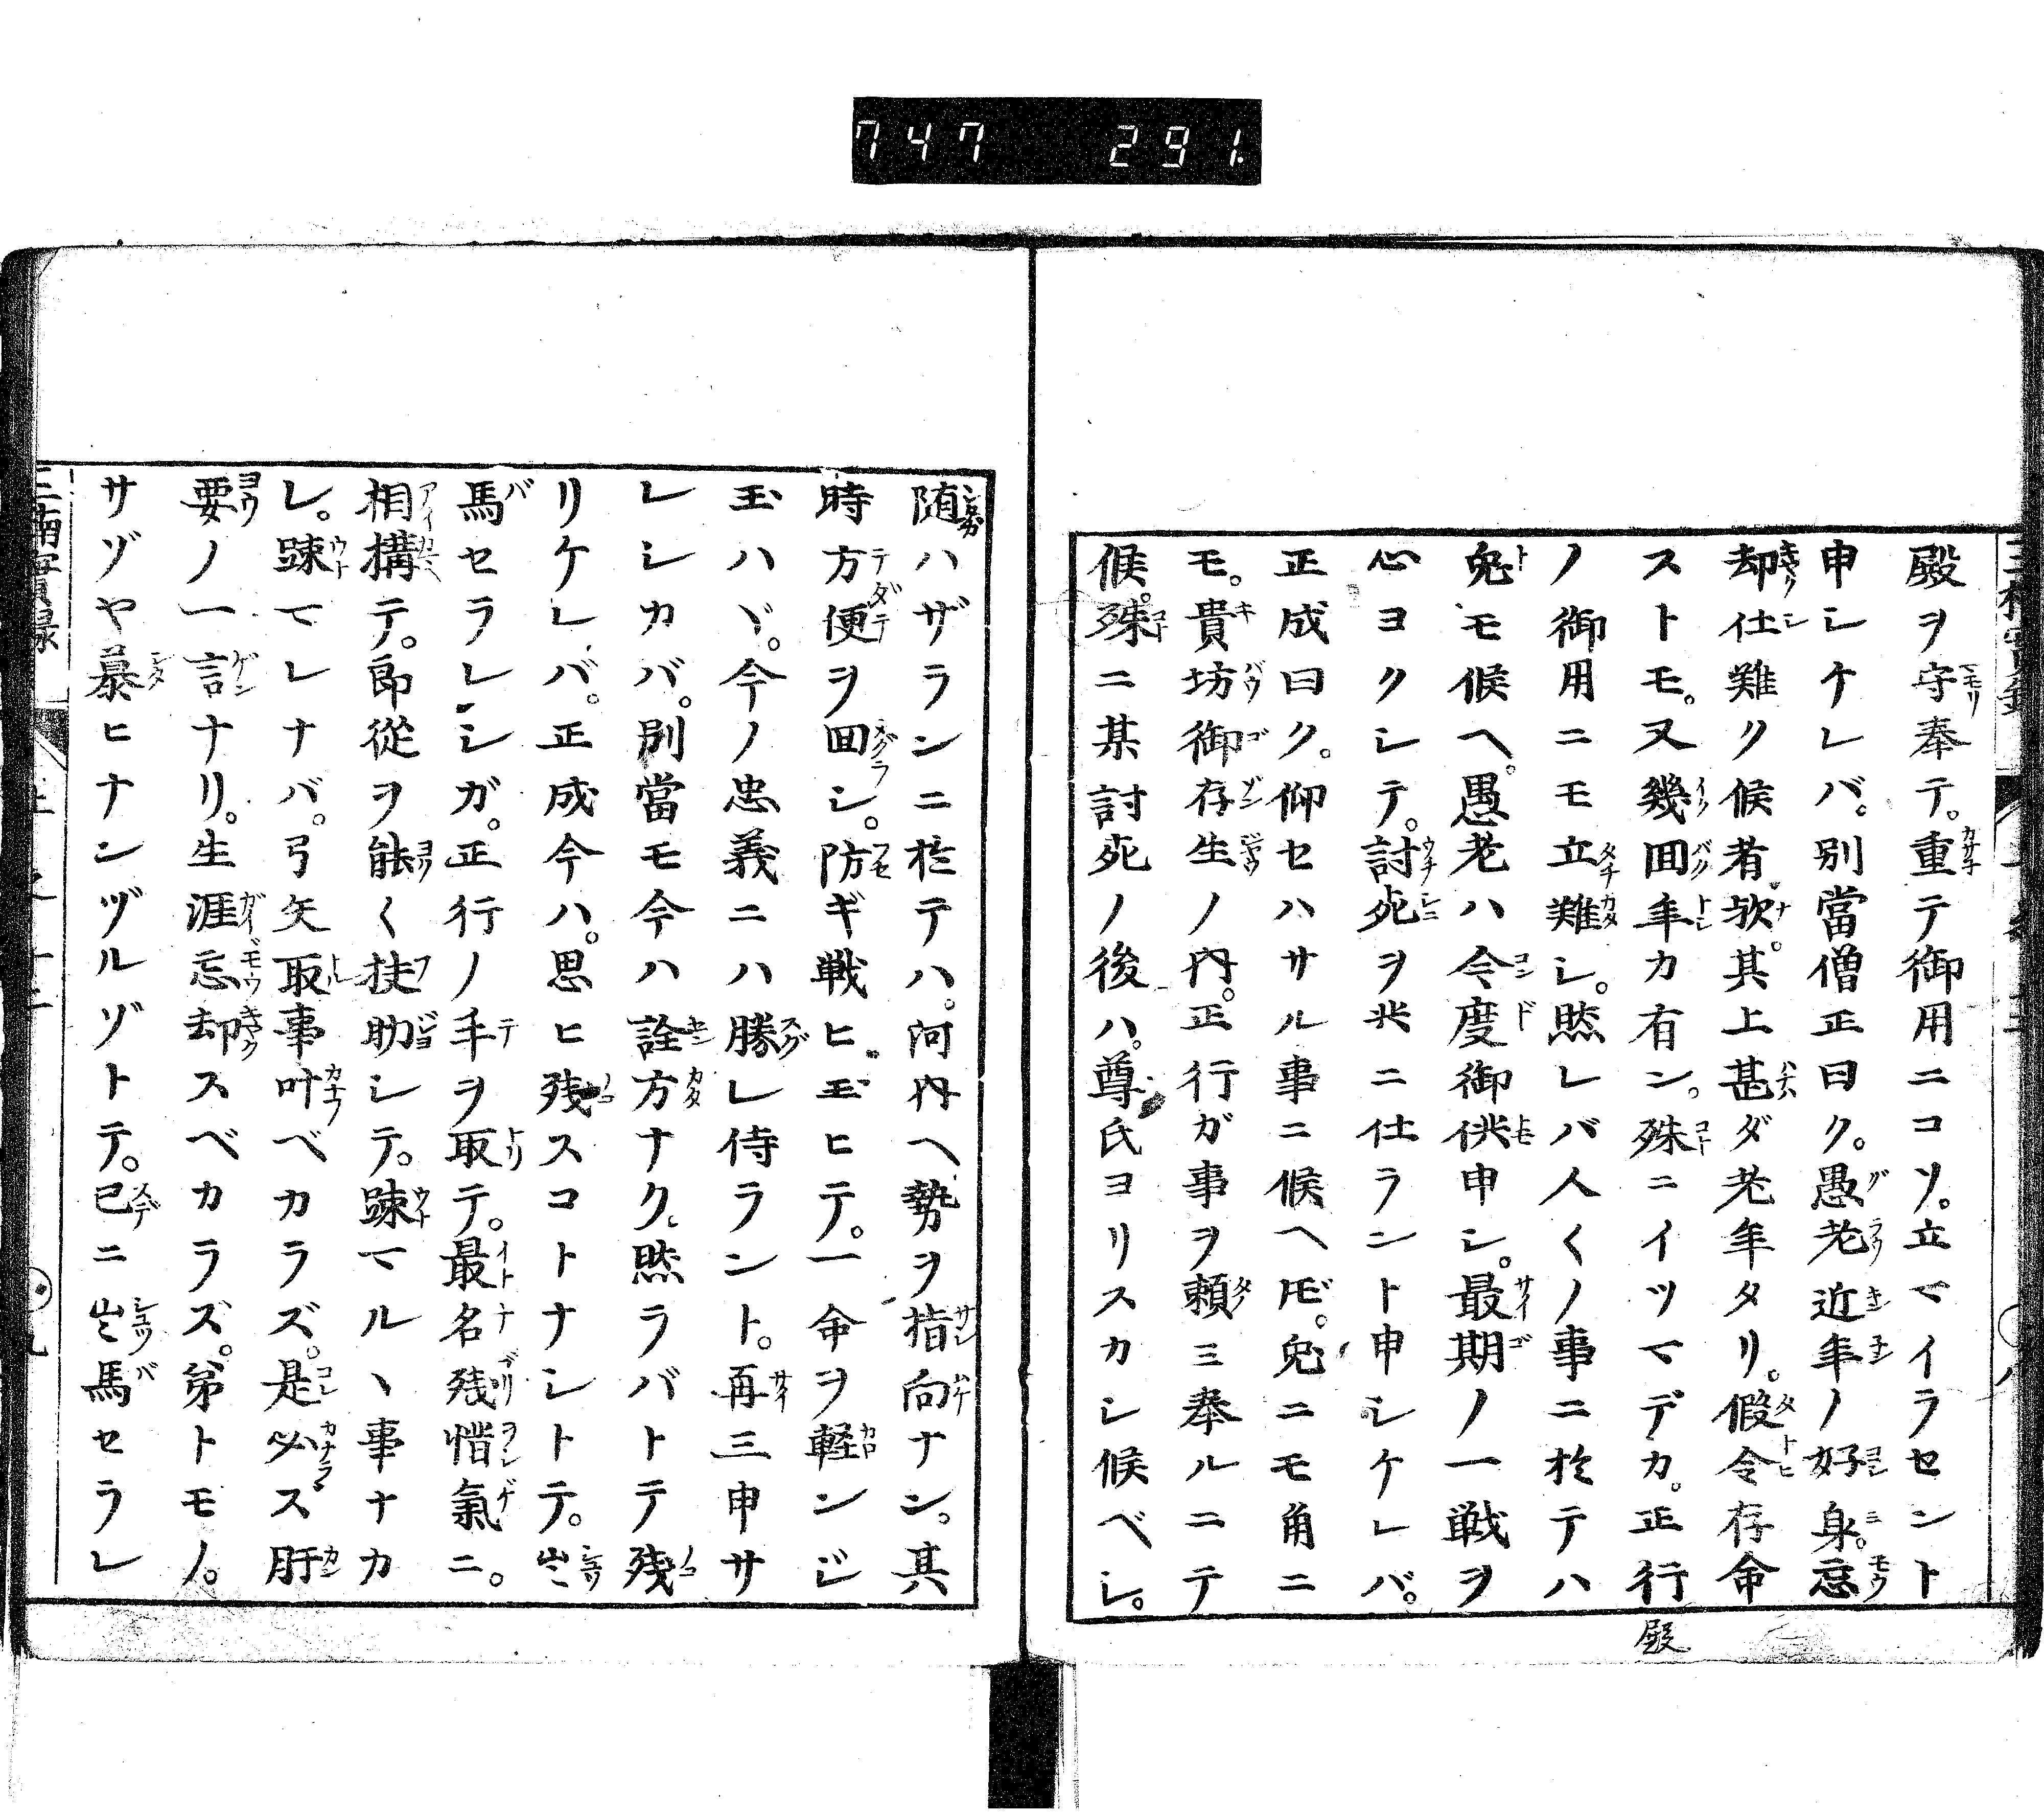 747 291
殿ヲ守奉テ。重テ御用ニコソ。立マイラセント
申シケレバ。別當僧正曰ク。愚老近年ノ好身。忘
却仕難ク候者欤。其上甚ダ老年タリ。假令存命
ストモ。又幾回年カ有ン。殊ニイツマデカ。正行
殿
ノ御用ニモ立難シ。然レバ人〱ノ事ニ於テハ
兎モ候ヘ。愚老ハ今度御供申シ。最期ノ一戦ヲ
心ヨクシテ。討死ヲ共ニ仕ラント申シケレバ。
正成曰ク。仰セハサル事ニ候ヘ𪜈。兎ニモ角ニ
モ。貴坊御存生ノ内。正行ガ事ヲ頼ミ奉ルニテ
候。殊ニ某討死ノ後ハ。尊氏ヨリスカシ候ベシ。
随ハザランニ於テハ。河内ヘ勢ヲ指向ナン。其
時方便ヲ回シ。防ギ戦ヒ玉ヒテ。一命ヲ軽ンジ
玉ハヾ。今ノ忠義ニハ勝レ侍ラント。再三申サ
レシカバ。別當モ今ハ詮方ナク。然ラバトテ残
リケレバ。正成今ハ。思ヒ残スコトナシトテ。出
馬セラレシガ。正行ノ手ヲ取テ。最名残惜氣ニ。
相構テ。郎從ヲ能ク扶助シテ。踈マルヽ事ナカ
レ。踈マレナバ。弓矢取事叶ベカラズ。是必ス肝
要ノ一言ナリ。生涯忘却スベカラズ。弟トモノ。
サゾヤ慕ヒナンヅルゾトテ。已ニ出馬セラレ